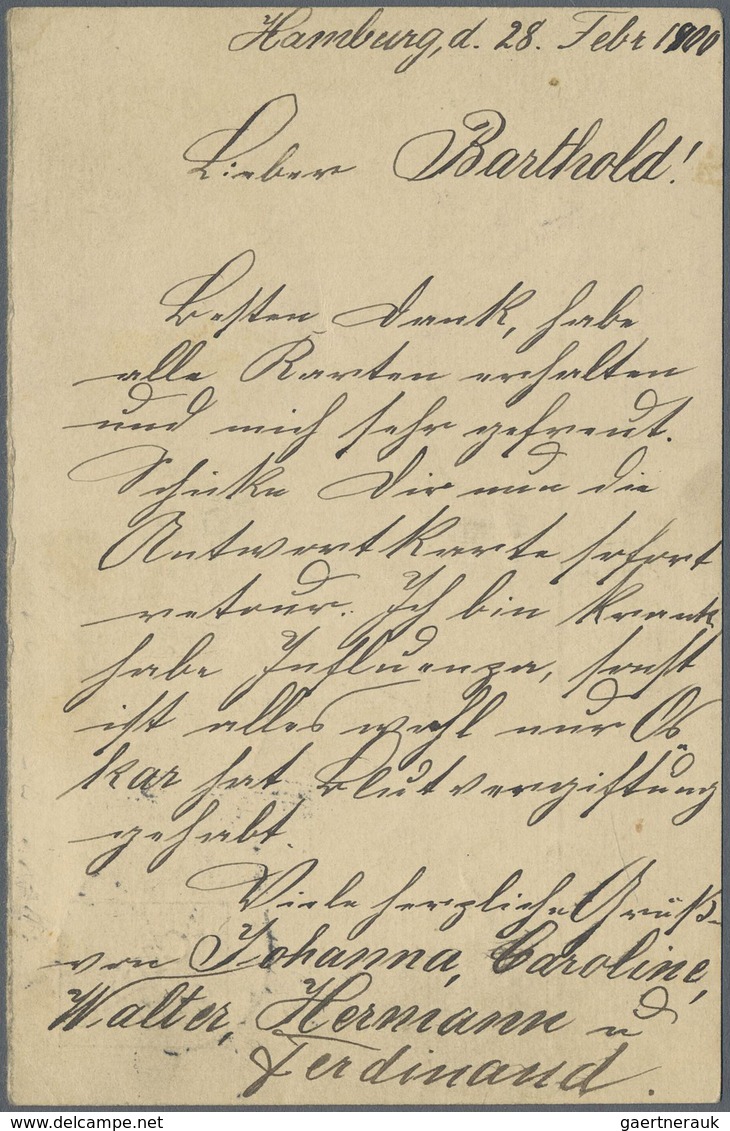 Hamburg, d. 28. Febr 1900
Lieber Barthold!
Besten Dank, habe
alle Karten erhalten
und mich sehr gefreut.
Schicke Dir nun die
Antwortkarte sofort
retour. Ich bin krank
habe Influenza, sonst
ist alles wohl nur Os
kar hat Blutvergiftung
gehabt.
Viele herzliche Grüße
von Johanna, Caroline,
Walter, Hermann u
Ferdinand.
www.delcampe.net
gaertnerauk